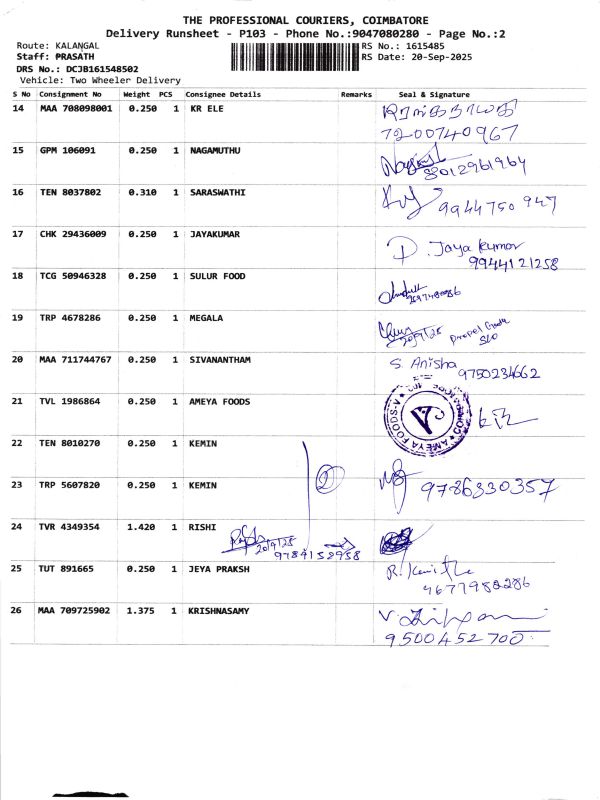 THE PROFESSIONAL COURIERS, COIMBATORE
Delivery Runsheet - P103 - Phone No.:9047080280 - Page No.:2
Route: KALANGAL
RS No.: 1615485
Staff: PRASATH
RS Date: 20-Sep-2025
DRS No.: DCJB161548502
Vehicle: Two Wheeler Delivery
S No Consignment No Weight PCS Consignee Details Remarks Seal & Signature
14 MAA 708098001 0.250 1 KR ELE
7200740967
15 GPM 106091 0.250 1 NAGAMUTHU
8012961964
16 TEN 8037802 0.310 1 SARASWATHI
9944750947
17 CHK 29436009 0.250 1 JAYAKUMAR
D. Jaya kumar
9944121258
18 TCG 50946328 0.250 1 SULUR FOOD
19 TRP 4678286 0.250 1 MEGALA
20/9/25
20 MAA 711744767 0.250 1 SIVANANTHAM S. Anisha
9750234662
21 TVL 1986864 0.250 1 AMEYA FOODS
AMEYA FOODS
22 TEN 8010270 0.250 1 KEMIN
2
23 TRP 5607820 0.250 1 KEMIN 9786330357
24 TVR 4349354 1.420 1 RISHI
20/9/25
9784152958
25 TUT 891665 0.250 1 JEYA PRAKSH
9677988286
26 MAA 709725902 1.375 1 KRISHNASAMY
9500452700